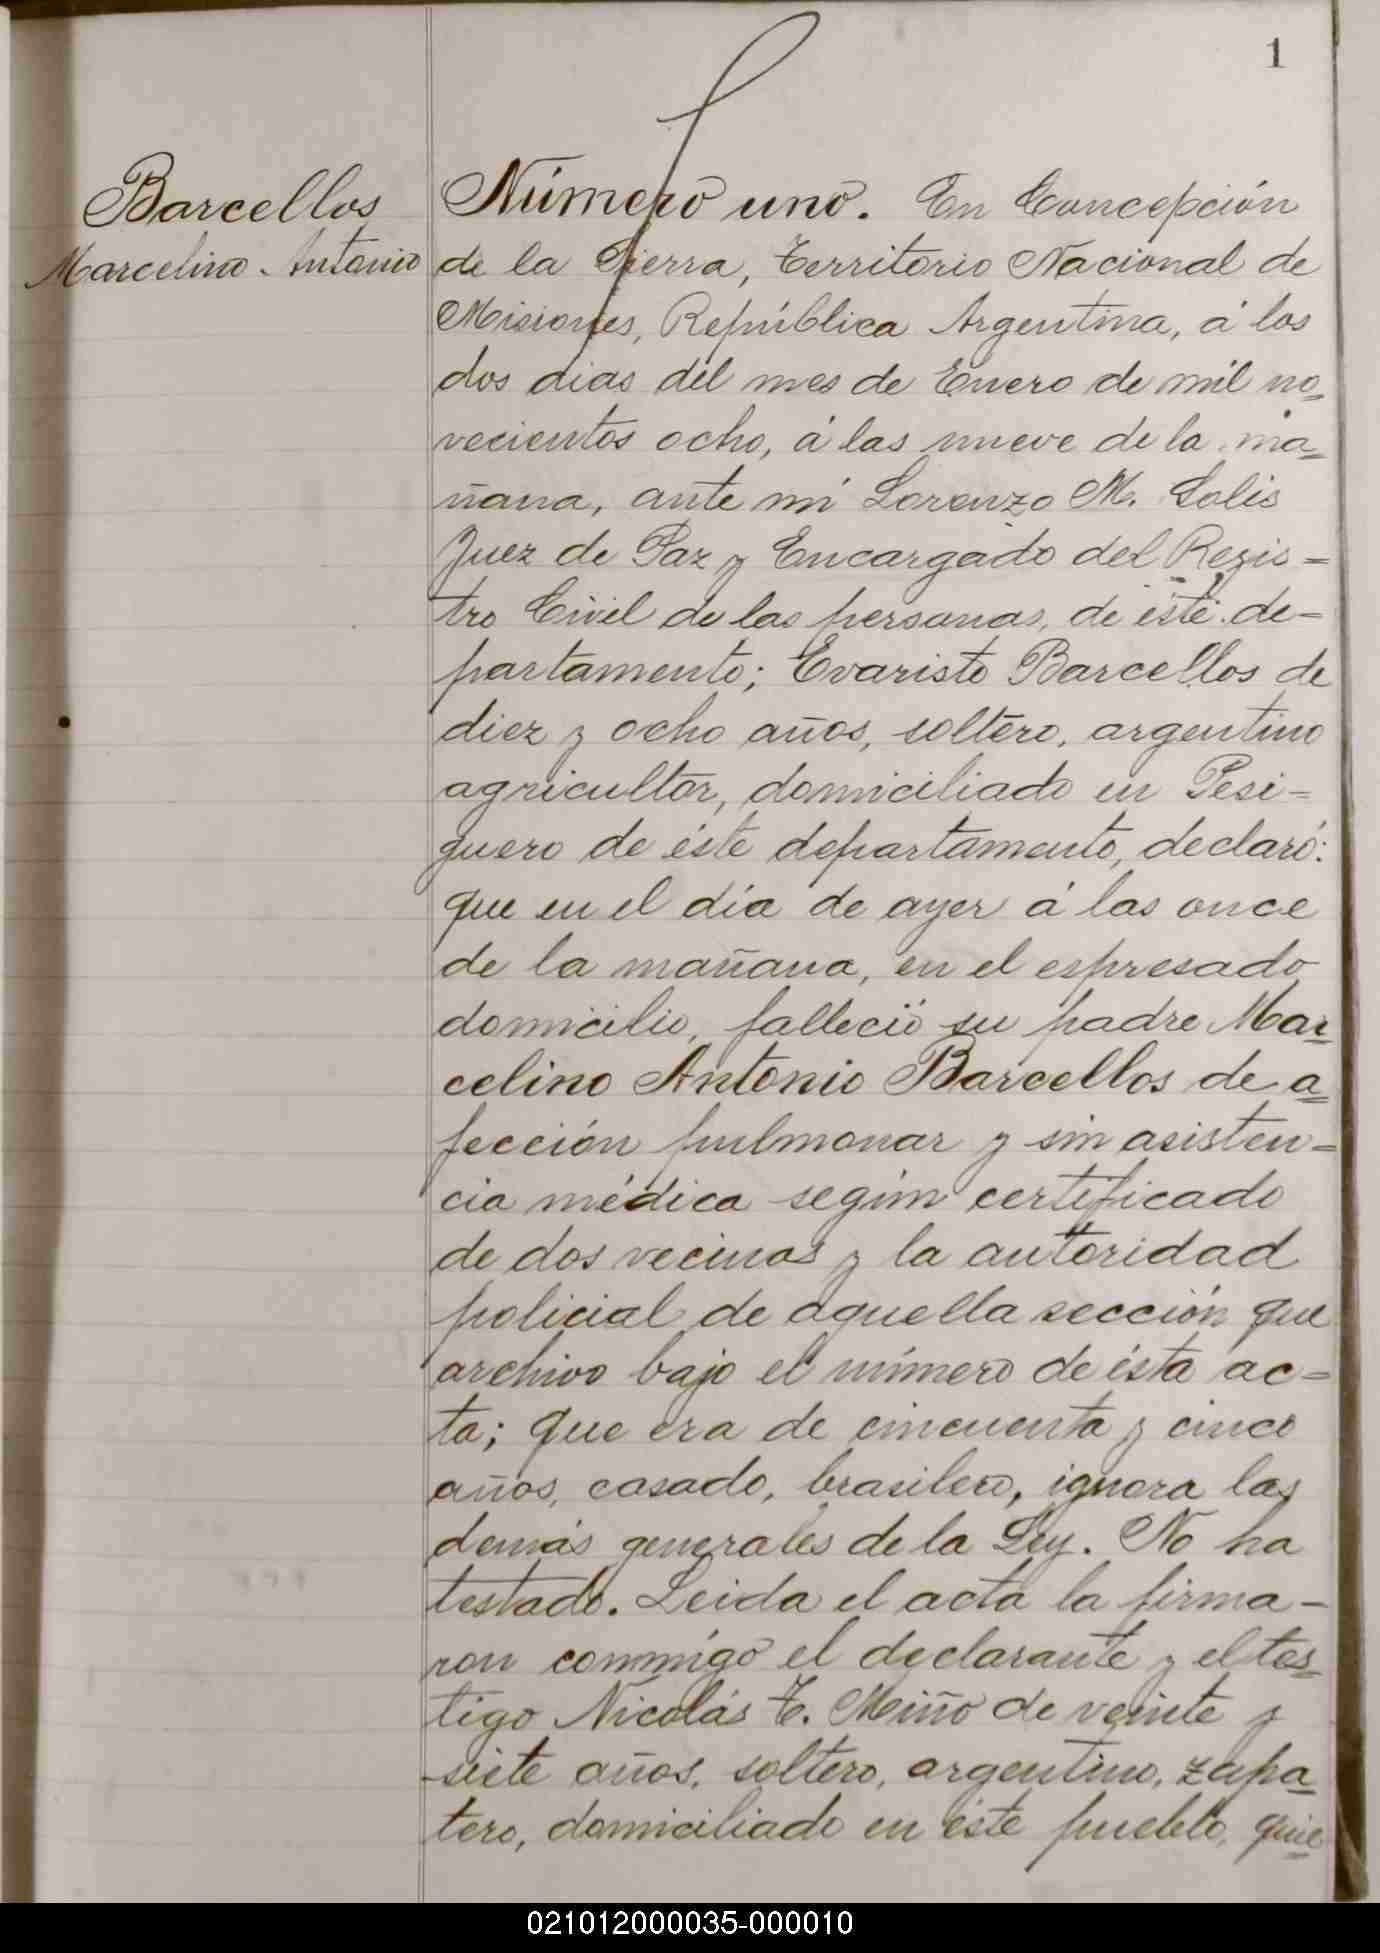 1
Barcellos
Marcelino Antonio
Número uno. En Concepción
de la Sierra, Territorio Nacional de
Misiones, República Argentina, á los
dos dias del mes de Enero de mil no=
vecientos ocho, á las nueve de la ma=
ñana, ante mi Lorenzo M. Solis
Juez de Paz y Encargado del Regis=
tro Civil de las personas, de éste de-
partamento; Evaristo Barcellos de
diez y ocho años, soltero, argentino
agricultor, domiciliado en Pesi=
guero de éste departamento, declaró:
que en el día de ayer á las once
de la mañana, en el espresado
domicilio, falleció su padre Mar=
celino Antonio Barcellos de a=
fección pulmonar y sin asisten=
cia médica según certificado
de dos vecinos y la autoridad
policial de aquella sección que
archivo bajo el número de ésta ac=
ta; que era de cincuenta y cinco
años, casado, brasilero, ignora las
demás generales de la Ley. No ha
testado. Leida el acta la firma-
ron conmigo el declarante y el tes=
tigo Nicolás T. Miño de veinte y
siete años, soltero, argentino, zapa=
tero, domiciliado en éste pueblo, quie=
021012000035-000010